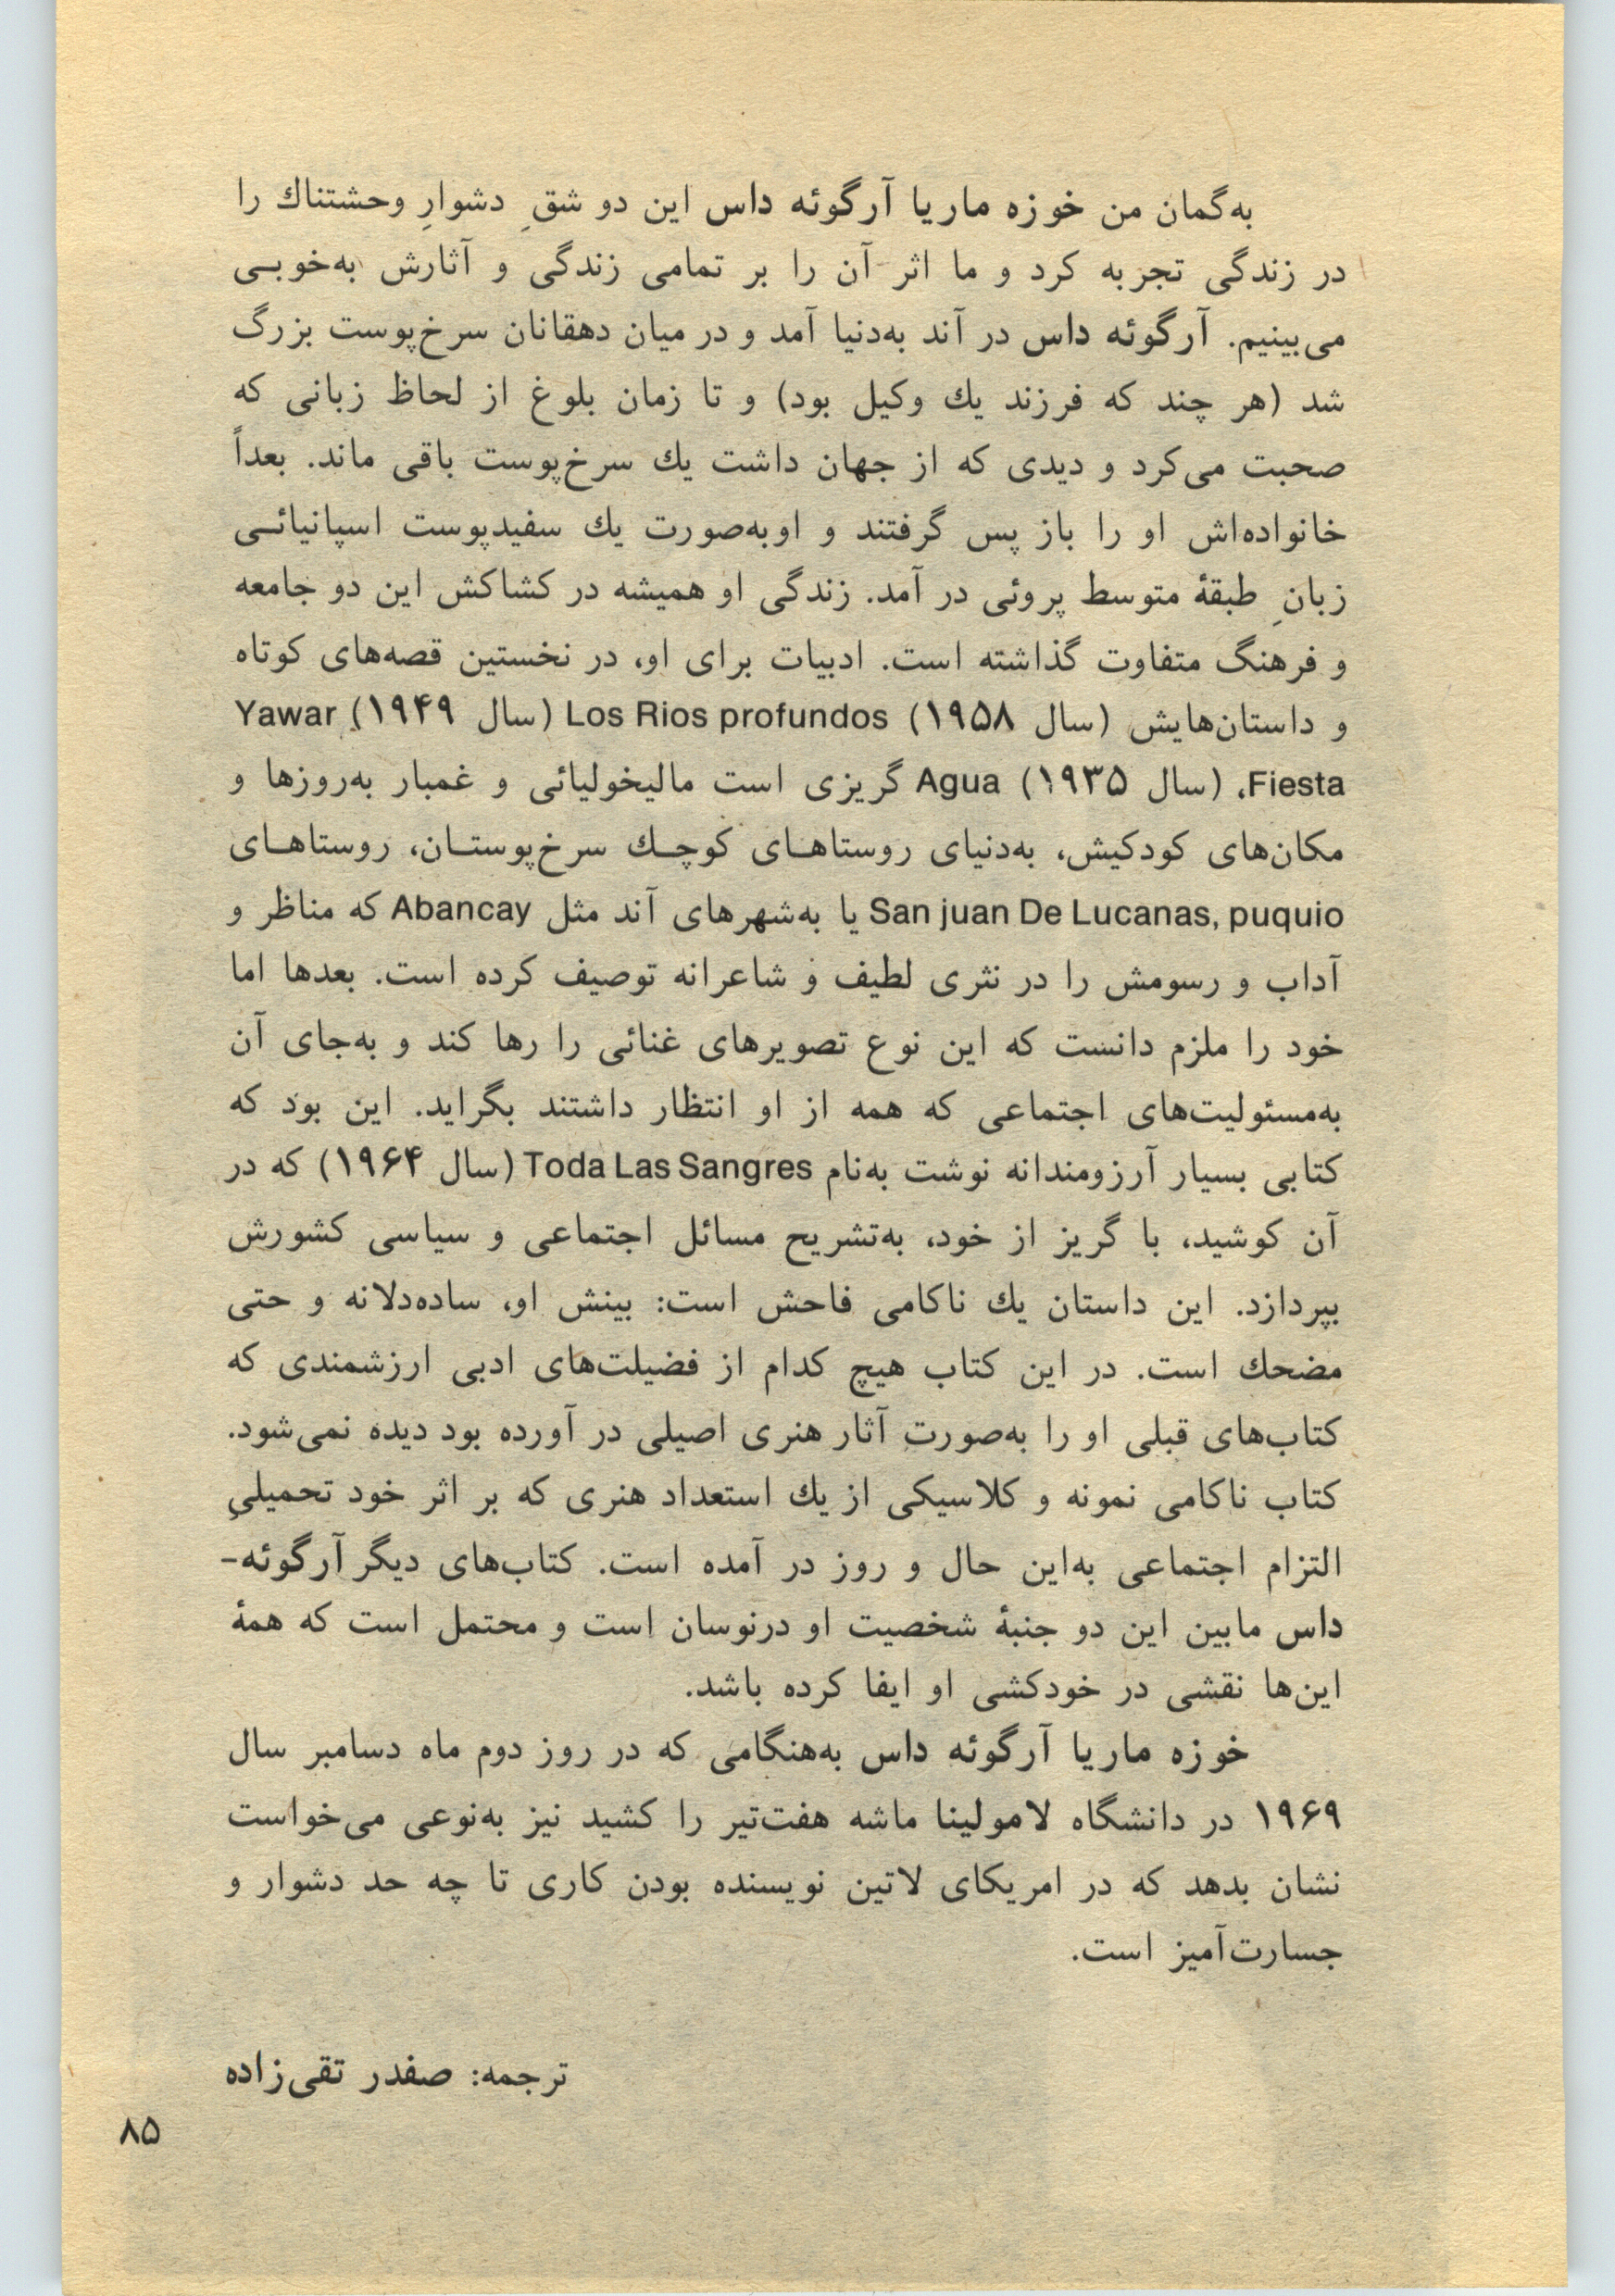 به‌گمان من خوزه ماریا آرگوئه داس این دو شقِ دشوارِ وحشتناك را
در زندگی تجربه کرد و ما اثر آن را بر تمامی زندگی و آثارش به‌خوبی
می‌بینیم. آرگوئه داس در آند به‌دنیا آمد و در میان دهقانان سرخ‌پوست بزرگ
شد (هر چند که فرزند یك وکیل بود) و تا زمان بلوغ از لحاظ زبانی که
صحبت می‌کرد و دیدی که از جهان داشت یك سرخ‌پوست باقی ماند. بعداً
خانواده‌اش او را باز پس گرفتند و او به‌صورت یك سفیدپوست اسپانیائی
زبانِ طبقهٔ متوسط پروئی در آمد. زندگی او همیشه در کشاکش این دو جامعه
و فرهنگ متفاوت گذاشته است. ادبیات برای او، در نخستین قصه‌های کوتاه
و داستان‌هایش (سال ۱۹۵۸) Los Rios profundos (سال ۱۹۴۹) Yawar
Fiesta، (سال ۱۹۳۵) Agua گریزی است مالیخولیائی و غمبار به‌روزها و
مکان‌های کودکیش، به‌دنیای روستاهای کوچك سرخ‌پوستان، روستاهای
San juan De Lucanas, puquio یا به‌شهرهای آند مثل Abancay که مناظر و
آداب و رسومش را در نثری لطیف و شاعرانه توصیف کرده است. بعدها اما
خود را ملزم دانست که این نوع تصویرهای غنائی را رها کند و به‌جای آن
به‌مسئولیت‌های اجتماعی که همه از او انتظار داشتند بگراید. این بود که
کتابی بسیار آرزومندانه نوشت به‌نام Toda Las Sangres (سال ۱۹۶۴) که در
آن کوشید، با گریز از خود، به‌تشریح مسائل اجتماعی و سیاسی کشورش
بپردازد. این داستان یك ناکامی فاحش است: بینش او، ساده‌دلانه و حتی
مضحك است. در این کتاب هیچ کدام از فضیلت‌های ادبی ارزشمندی که
کتاب‌های قبلی او را به‌صورتِ آثار هنری اصیلی در آورده بود دیده نمی‌شود.
کتاب ناکامی نمونه و کلاسیکی از یك استعداد هنری که بر اثر خود تحمیلیِ
التزام اجتماعی به‌این حال و روز در آمده است. کتاب‌های دیگر آرگوئه-
داس مابین این دو جنبهٔ شخصیت او درنوسان است و محتمل است که همهٔ
این‌ها نقشی در خودکشی او ایفا کرده باشد.
خوزه ماریا آرگوئه داس به‌هنگامی که در روز دوم ماه دسامبر سال
۱۹۶۹ در دانشگاه لامولینا ماشه هفت‌تیر را کشید نیز به‌نوعی می‌خواست
نشان بدهد که در امریکای لاتین نویسنده بودن کاری تا چه حد دشوار و
جسارت‌آمیز است.
ترجمه: صفدر تقی‌زاده
۸۵